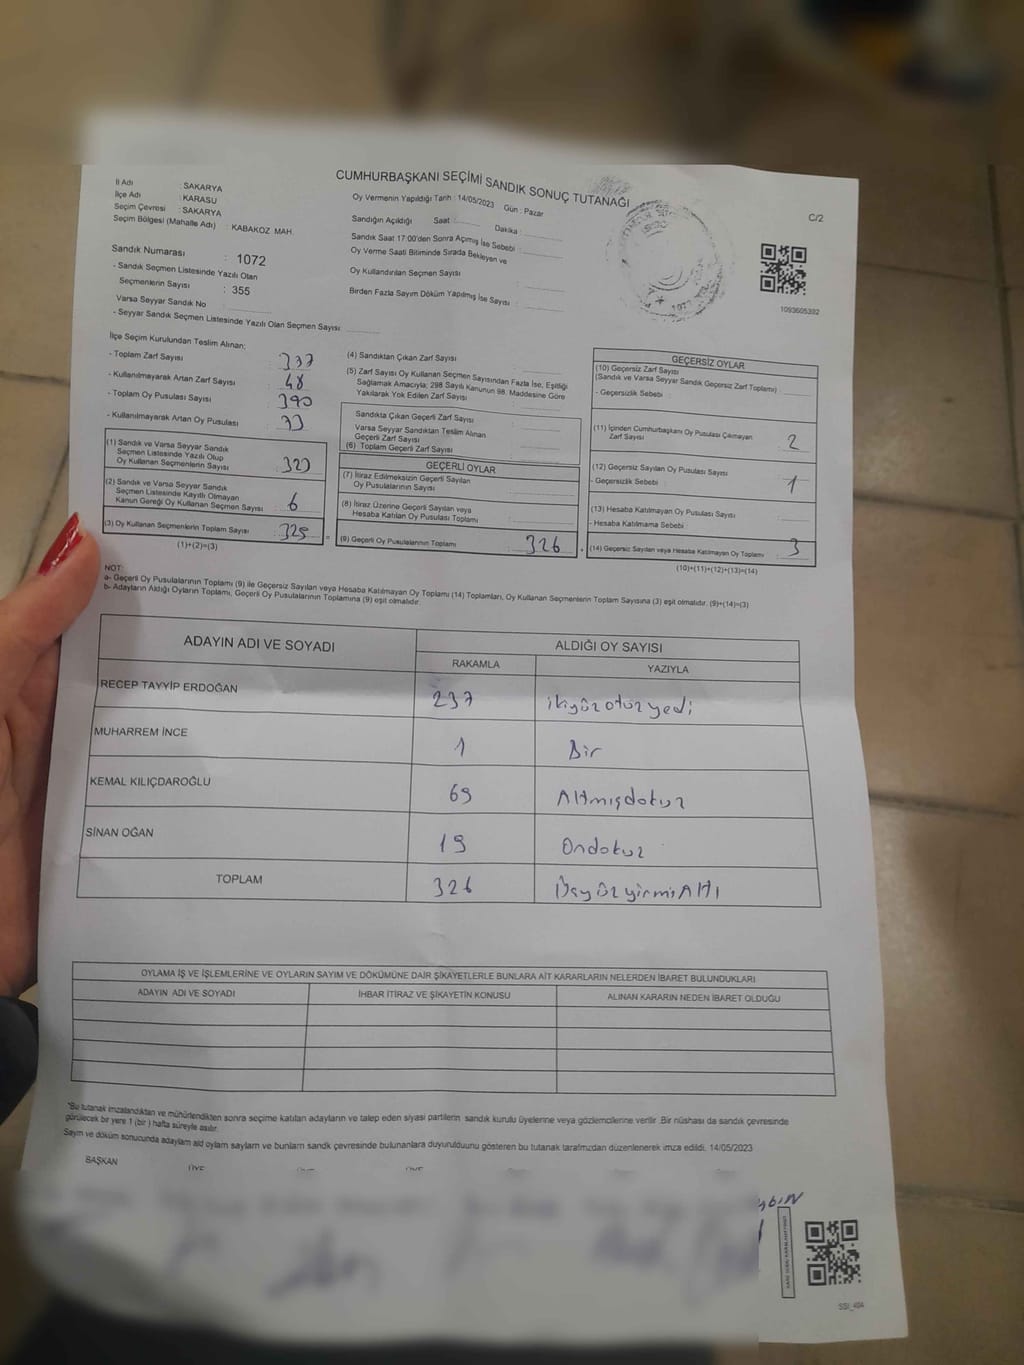 CUMHURBAŞKANI SEÇİMİ SANDIK SONUÇ TUTANAĞI
C/2
İl Adı : SAKARYA
İlçe Adı : KARASU
Seçim Çevresi : SAKARYA
Seçim Bölgesi (Mahalle Adı) : KABAKOZ MAH.
Oy Vermenin Yapıldığı Tarih : 14/05/2023 Gün : Pazar
Sandığın Açıldığı Saat : Dakika :
Sandık Saat 17:00'den Sonra Açımış İse Sebebi :
Oy Verme Saati Bitiminde Sırada Bekleyen ve
Oy Kullandırılan Seçmen Sayısı :
Birden Fazla Sayım Döküm Yapılmış İse Sayısı :
1093605392
Sandık Numarası : 1072
- Sandık Seçmen Listesinde Yazılı Olan
Seçmenlerin Sayısı : 355
Varsa Seyyar Sandık No :
- Seyyar Sandık Seçmen Listesinde Yazılı Olan Seçmen Sayısı :
İlçe Seçim Kurulundan Teslim Alınan;
- Toplam Zarf Sayısı : 337
- Kullanılmayarak Artan Zarf Sayısı : 48
- Toplam Oy Pusulası Sayısı : 390
- Kullanılmayarak Artan Oy Pusulası :
(1) Sandık ve Varsa Seyyar Sandık
Seçmen Listesinde Yazılı Olup
Oy Kullanan Seçmenlerin Sayısı : 323
(2) Sandık ve Varsa Seyyar Sandık
Seçmen Listesinde Kayıtlı Olmayan
Kanun Gereği Oy Kullanan Seçmen Sayısı : 6
(3) Oy Kullanan Seçmenlerin Toplam Sayısı : 329
(1)+(2)=(3)
(4) Sandıktan Çıkan Zarf Sayısı
(5) Zarf Sayısı Oy Kullanan Seçmen Sayısından Fazla İse, Eşitliği
Sağlamak Amacıyla; 298 Sayılı Kanunun 98. Maddesine Göre
Yakılarak Yok Edilen Zarf Sayısı :
Sandıkta Çıkan Geçerli Zarf Sayısı :
Varsa Seyyar Sandıktan Teslim Alınan
Geçerli Zarf Sayısı :
(6) Toplam Geçerli Zarf Sayısı :
GEÇERLİ OYLAR
(7) İtiraz Edilmeksizin Geçerli Sayılan
Oy Pusulalarının Sayısı :
(8) İtiraz Üzerine Geçerli Sayılan veya
Hesaba Katılan Oy Pusulası Toplamı :
(9) Geçerli Oy Pusulalarının Toplamı : 326
GEÇERSİZ OYLAR
(10) Geçersiz Zarf Sayısı
(Sandık ve Varsa Seyyar Sandık Geçersiz Zarf Toplamı) :
- Geçersizlik Sebebi :
(11) İçinden Cumhurbaşkanı Oy Pusulası Çıkmayan
Zarf Sayısı : 2
(12) Geçersiz Sayılan Oy Pusulası Sayısı : 1
- Geçersizlik Sebebi :
(13) Hesaba Katılmayan Oy Pusulası Sayısı :
- Hesaba Katılmama Sebebi :
(14) Geçersiz Sayılan veya Hesaba Katılmayan Oy Toplamı : 3
(10)+(11)+(12)+(13)=(14)
NOT:
a- Geçerli Oy Pusulalarının Toplamı (9) ile Geçersiz Sayılan veya Hesaba Katılmayan Oy Toplamı (14) Toplamları, Oy Kullanan Seçmenlerin Toplam Sayısına (3) eşit olmalıdır. (9)+(14)=(3)
b- Adayların Aldığı Oyların Toplamı, Geçerli Oy Pusulalarının Toplamına (9) eşit olmalıdır.
ADAYIN ADI VE SOYADI ALDIĞI OY SAYISI
RAKAMLA YAZIYLA
RECEP TAYYİP ERDOĞAN 237 ikiyüzotuzyedi
MUHARREM İNCE 1 Bir
KEMAL KILIÇDAROĞLU 69 Altmışdokuz
SİNAN OĞAN 19 Ondokuz
TOPLAM 326 ÜçyüzyirmiAltı
OYLAMA İŞ VE İŞLEMLERİNE VE OYLARIN SAYIM VE DÖKÜMÜNE DAİR ŞİKAYETLERLE BUNLARA AİT KARARLARIN NELERDEN İBARET BULUNDUKLARI
ADAYIN ADI VE SOYADI İHBAR İTİRAZ VE ŞİKAYETİN KONUSU ALINAN KARARIN NEDEN İBARET OLDUĞU
"Bu tutanak imzalandıktan ve mühürlendikten sonra seçime katılan adayların ve talep eden siyasi partilerin sandık kurulu üyelerine veya gözlemcilerine verilir. Bir nüshası da sandık çevresinde
görülecek bir yere 1 (bir) hafta süreyle asılır.
Sayım ve döküm sonucunda adayların ald oyların sayların ve bunların sandk çevresinde bulunanlara duyurulduunu gösteren bu tutanak tarafmzdan düzenlenerek imza edildi. 14/05/2023
BAŞKAN ÜYE ÜYE ÜYE
SSI_404